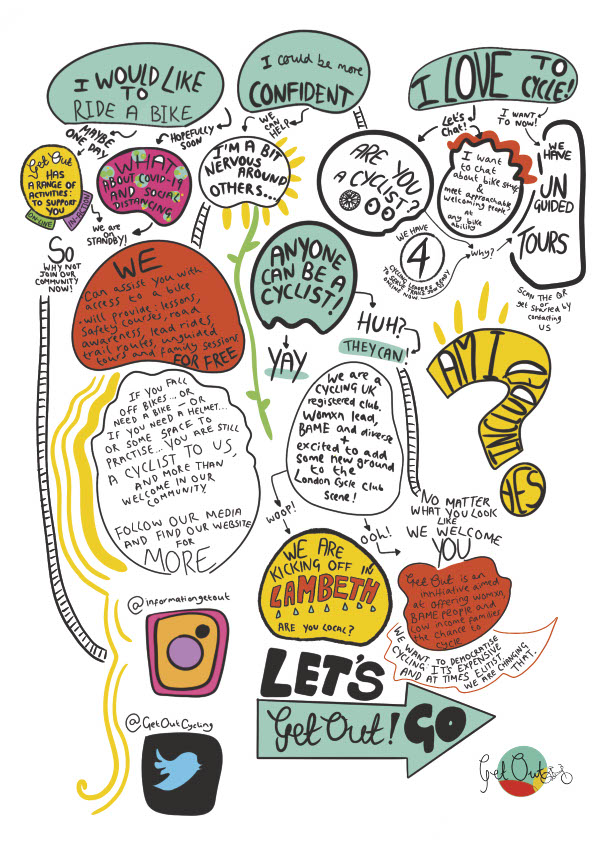 I WOULD LIKE
TO
RIDE A BIKE
I could be more
CONFIDENT
I LOVE TO
CYCLE!
MAYBE
ONE DAY
HOPEFULLY
SOON
WE
CAN
HELP
Let's
Chat!
I WANT
TO NOW!
Get Out
HAS
A RANGE OF
ACTIVITIES
TO SUPPORT
YOU
ONLINE
IN-ACTION
WHAT
ABOUT COVID-19
AND SOCIAL
DISTANCING
WE ARE
ON
STANDBY!
I'M A BIT
NERVOUS
AROUND
OTHERS...
ARE YOU
A CYCLIST?
I want to
chat
about bike stuff
&
meet approachable,
welcoming people
at
any bike
ability
WE
HAVE
UN
GUIDED
TOURS
WE HAVE
4
CYCLING LEADERS
TO SERVE TRAILS
ONLINE NOW
READY
Why?
SCAN THE QR
or get started by
contacting
US
SO
WHY NOT
JOIN OUR
COMMUNITY
NOW!
WE
Can assist you with
access to a bike
• will provide: lessons,
Safety courses, road
awareness, lead rides,
trail routes, unguided
tours and family sessions
FOR FREE
ANYONE
CAN BE A
CYCLIST!
YAY
HUH?
THEY CAN!
AM I
GOOD IN
YES
IF YOU FALL
OFF BIKES... OR
NEED A BIKE... OR
IF YOU NEED A HELMET...
OR SOME SPACE TO
PRACTISE... YOU ARE STILL
A CYCLIST TO US,
AND MORE THAN
WELCOME IN OUR
COMMUNITY
FOLLOW OUR MEDIA
AND FIND OUR WEBSITE
FOR
MORE
We are a
CYCLING UK
registered club.
Womxn lead,
BAME and diverse
+
excited to add
some new ground
to the
London Cycle Club
Scene!
WOOP!
OOH!
NO MATTER
WHAT YOU LOOK
LIKE
WE WELCOME
YOU
WE ARE
KICKING OFF IN
LAMBETH
ARE YOU LOCAL?
Get Out is an
innitiative aimed
at offering womxn,
BAME people and
low income families
the chance to
cycle
WE WANT TO DEMOCRATISE
CYCLING. IT'S EXPENSIVE
AND AT TIMES ELITIST
WE ARE CHANGING
THAT.
@informationgetout
@GetOutCycling
LET'S
Get Out! GO
Get Out